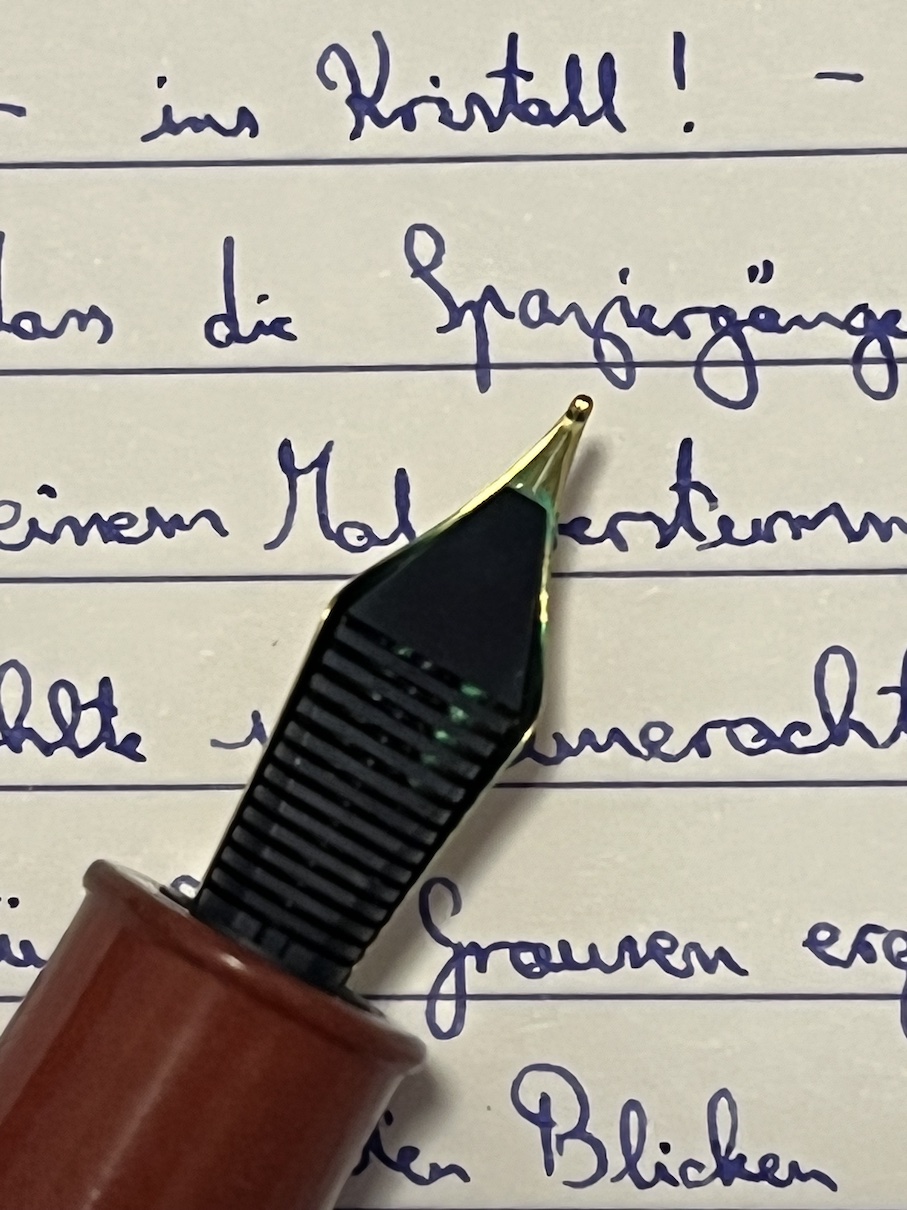 - ins Kristall! -
dass die Spaziergänge
einem Mal erstumm
hlte uneracht
Grausen erg
Blicken